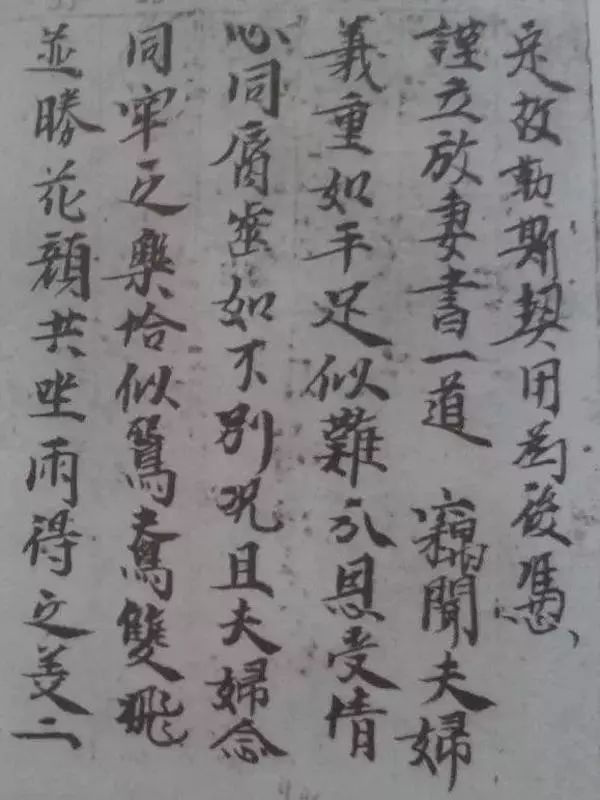 定故勒斯契用為後馮
謹立放妻書一道 竊聞夫婦
義重如手足似難分恩受情
心同脣齒如不別況且夫婦念
同牢之樂恰似鴛鴦雙飛
並勝花顏共坐兩得之美二